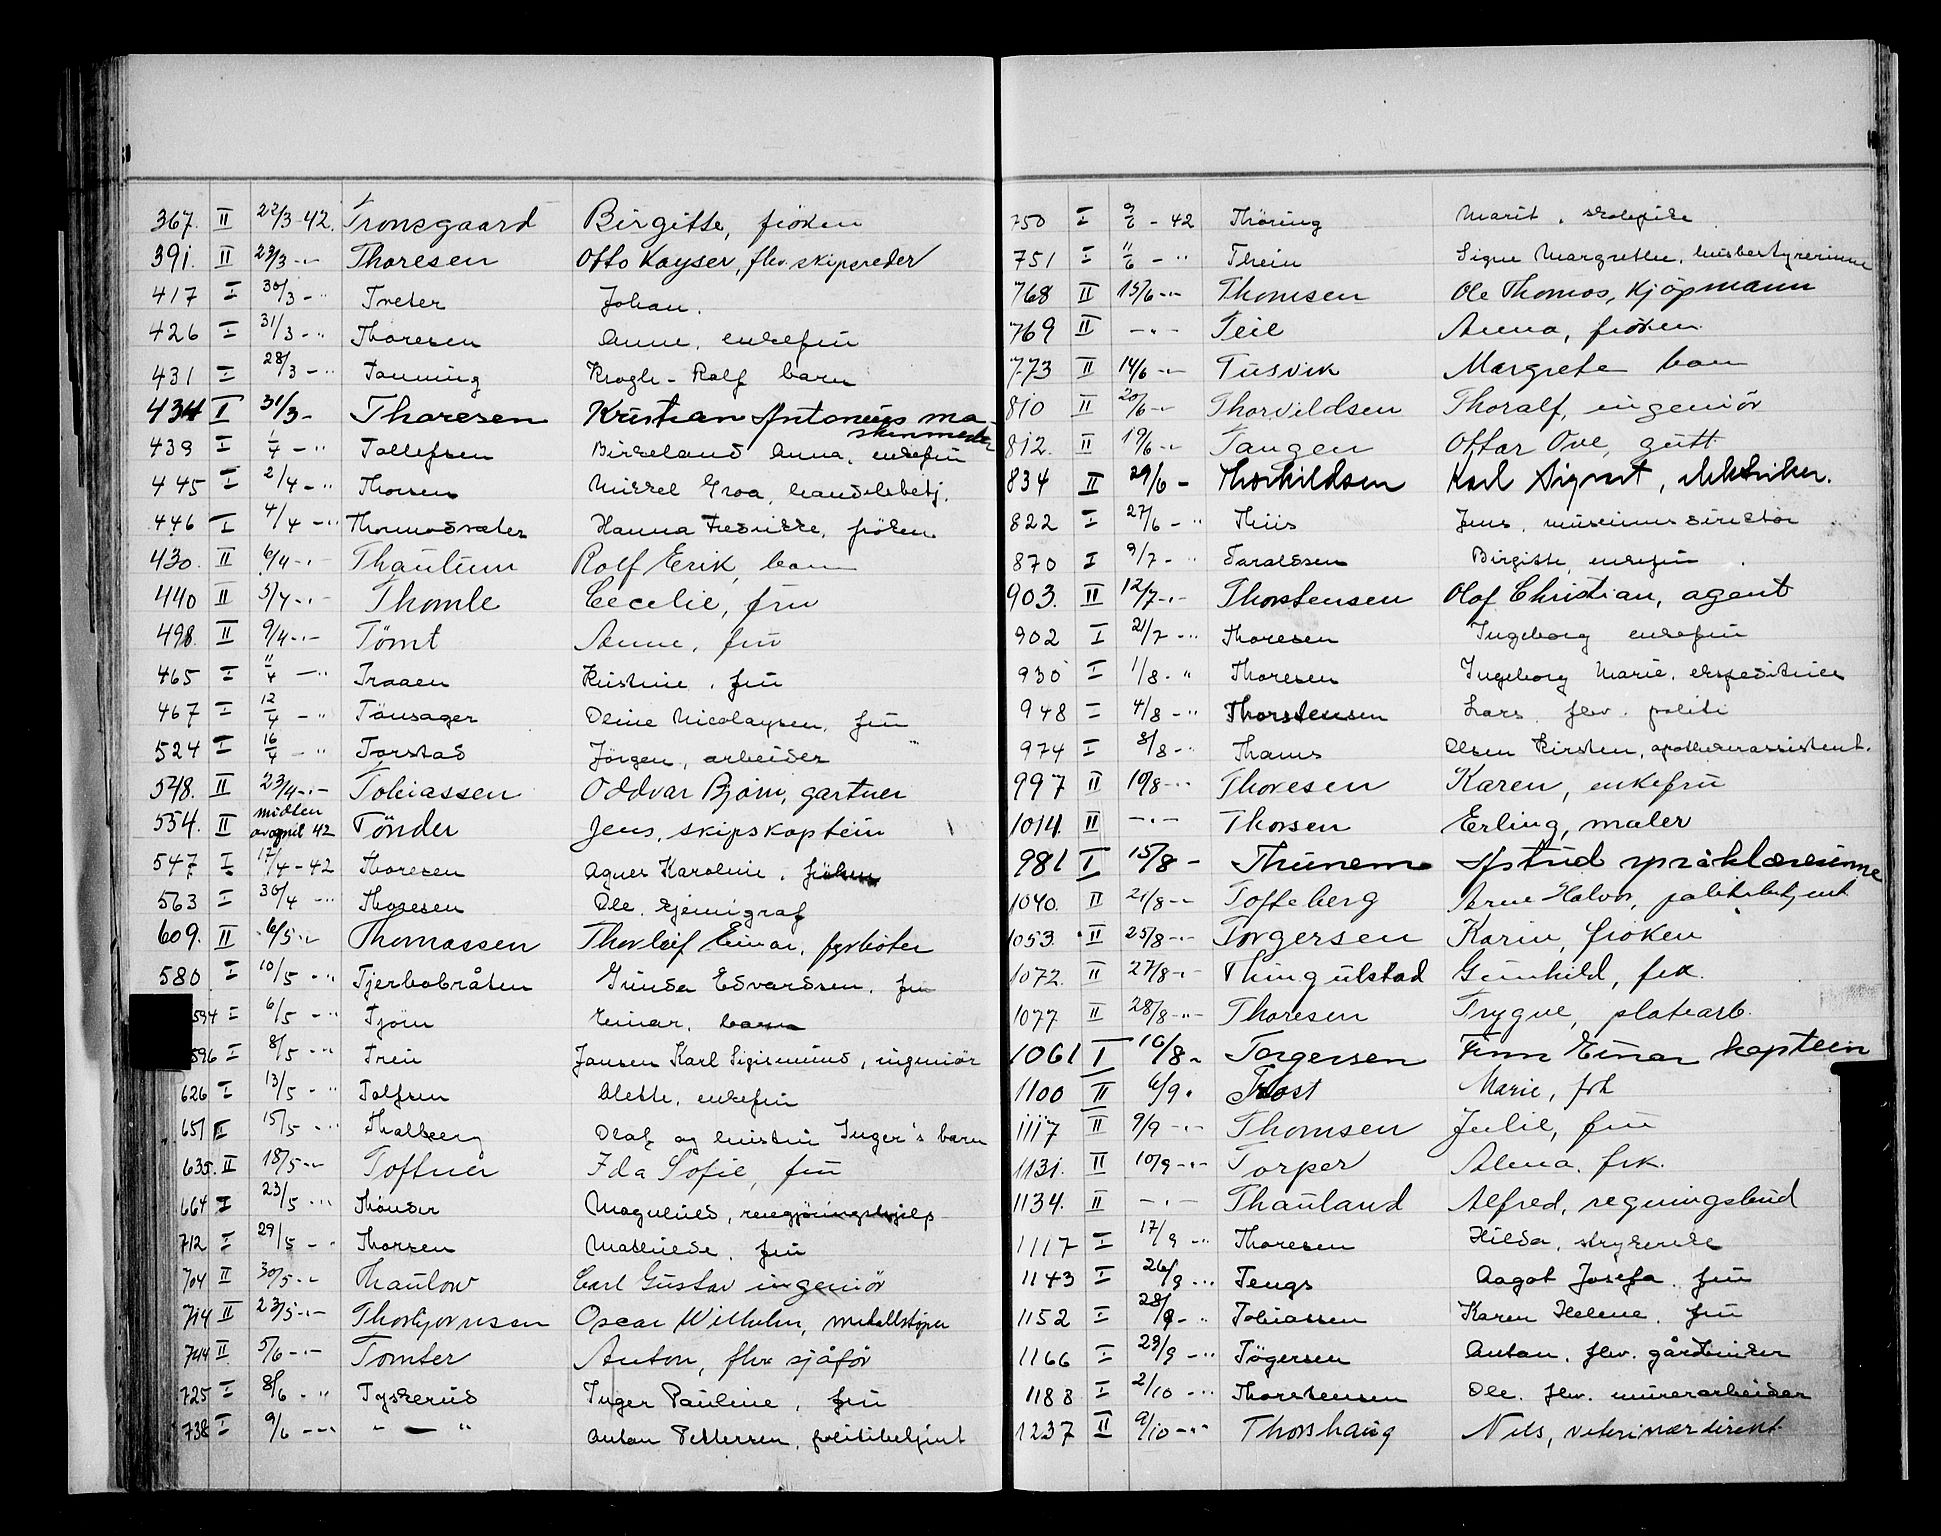 367. II 22/3-42. Tronsgaard Birgitte, frøken
391. II 23/3 -"- Thoresen Otto Kayser, fhv. skipsreder
417 I 30/3 - " Tveter Johan.
426 I 31/3 - " Thoresen Anne, enkefru
431 I 28/3 - " Tanning Krogh - Rolf barn
434 I 31/3 - Thoresen Kristian Antonius ma-
skinmester
439 I 1/4 - " Tollefsen Birkeland Anna, enkefru
445 I 2/4 - " Thorsen Mikkel Groa, handelsbetj.
446 I 4/4 - " Thormodsæter Hanna Fredrikke, frøken
430. II 6/4 -"- Thaulum Rolf Erik, barn
440 II 5/4 -"- Thomle Cecilie, fru
498. II 9/4 -"- Tømt Anne, fru
465 I 11/4 - " Traaen Kristine, fru
467 I 12/4 - " Tønsager Oline Nicolaysen, fru
524 I 16/4 - " Torstad Jørgen, arbeider
548. II 23/4 -"- Tobiassen Oddvar Bjørn, gartner
554. II midten av april 42 Tønder Jens, skipskaptein
547 I 17/4 - 42 Thoresen Agnes Karoline, frøken
563 I 30/4 - " Thoresen Ole, kjemigraf
609. II 6/5 -"- Thomassen Thorleif Einar, fyrbøter
580 I 10/5 - " Tjerbobråten Gunda Edvardsen, fru
594 I 6/5 - " Tjøm Einar, barn
596 I 8/5 - " Trein Jansen Karl Sigismund, ingeniør
626 I 13/5 - " Tolfsen Alette, enkefru
651 II 15/5 - " Thalberg Olaf og hustru Inger's barn
635. II 18/5 -"- Toftner Ida Sofie, fru
664 I 23/5 - " Thønder Magnhild, rengjøringshjelp
712 I 29/5 - " Thorsen Mathilde, fru
704 II 30/5 -"- Thaulow Carl Gustav ingeniør
714 II 23/5 -"- Thorbjørnsen Oscar Wilhelm, metallstøper
744 II 5/6 -"- Tomter Anton, fhv sjåfør
725 I 8/6 - " Tyskerud Inger Pauline, fru
738 I 9/6 - " - " - " Anton Pettersen, politibetjent
750 I 9/6 - 42 Thøring Marit, skolepike
751 I 11/6 - " Thein Signe Margrethe, husbestyrerinne
768 II 15/6 -"- Thomsen Ole Thomas, kjøpmann
769 II - " - Teie Anna, frøken
773 II 14/6 -"- Tusvik Margrete barn
810 II 20/6 -"- Thorvildsen Thoralf, ingeniør
812. II 19/6 -"- Tangen Ottar Ove, gutt
834 II 29/6 - Thorkildsen Karl Sigurt, elektriker.
822 I 27/6 - " Thiis Jens, museumsdirektør
870 I 9/7 - " Taraldsen Birgitte, enkefru
903. II 12/7 -"- Thorstensen Olaf Christian, agent
902 I 21/7 - " Thoresen Ingeborg enkefru
930 I 1/8 - " Thoresen Ingeborg Marie, ekspeditrise
948 I 4/8 - " Thorstensen Lars fhv. politi
974 I 8/8 - " Thams Olsen Kirsten, apotekerassistent.
997 II 10/8 -"- Thoresen Karen, enkefru
1014. II - " - Thorsen Erling, maler
981 I 15/8 - Thunem Astrid språklærerinne
1040. II 21/8 -"- Tofteberg Arne Halvor, politibetjent
1053. II 25/8 -"- Torgersen Karin, frøken
1072. II 27/8 -"- Thingulstad Gunhild, frk.
1077 II 28/8 -"- Thoresen Trygve, platearb.
1061 I 16/8 - Torgersen Finn Einar kaptein
1100 II 6/9 - Trost Marie, frk
1117 II 9/9 -"- Thomsen Julie, fru
1131. II 10/9 -"- Torper Alma, frk.
1134. II - " - Thauland Alfred, regningsbud
1117 I 17/9 - " Thoresen Hilda, strykerske
1143 I 26/9 - " Tengs Aagot Josefa, fru
1152 I 28/9 - " Tobiassen Karen Helene, fru
1166 I 29/9 - " Tøgersen Anton, fhv. gårdbruker
1188 I 2/10 - " Thorstensen Ole, fhv. murerarbeider
1237 II 9/10 -"- Thorshaug Nils, veterinærdirekt.